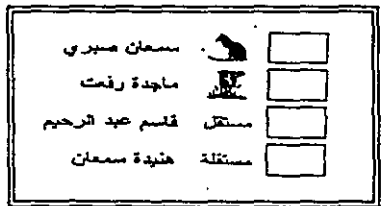 سمعان صبري
ماجدة رفعت
مستقل قاسم عبد الرحيم
مستقلة هنيدة سمعان